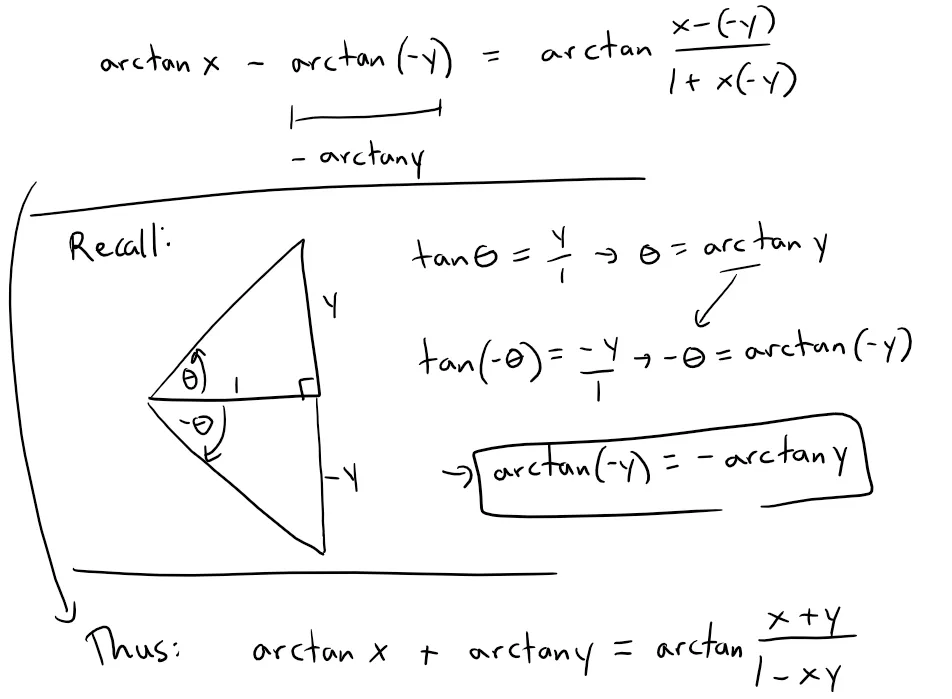 arctan x - arctan(-y) = arctan \frac{x-(-y)}{1+x(-y)}
- arctan y
Recall:
tan θ = \frac{y}{1} → θ = arctan y
y
tan(-θ) = \frac{-y}{1} → -θ = arctan(-y)
θ 1
-θ
→ arctan(-y) = - arctan y
-y
Thus: arctan x + arctan y = arctan \frac{x+y}{1-xy}